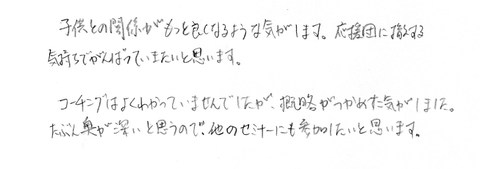 子供との関係がもっと良くなるような気がします。応援団に撤する
気持ちでがんばっていきたいと思います。
コーチングはよくわかっていませんでしたが、概略がつかめた気がしました。
たぶん奥が深いと思うので、他のセミナーにも参加したいと思います。